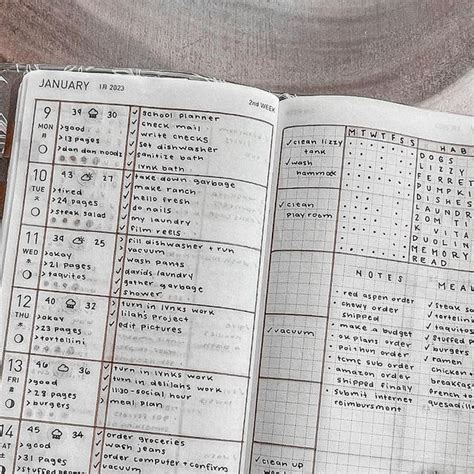 JANUARY 1月 2023
2nd WEEK
9
MON
39 30
>good
>13 pages
>dan dan noodz
✓school planner
✓check mail
✓write checks
✓set dishwasher
✓sanitize bath
✓lvnk bath
10
TUE
43 26
>tired
>24 pages
>steak salad
✓take down garbage
✓make ranch
✓hello fresh
✓do nails
✓my laundry
✓film reels
11
WED
45 25
>okay
>21 pages
>taquitos
✓fill dishwasher + run
✓vacuum
✓wash pants
✓davids laundry
✓gather garbage
✓shower
12
THU
40 32
>okay
>23 pages
>tortellini
✓turn in lvnks work
✓lilahs project
✓edit pictures
13
FRI
46 36
>good
>28 pages
>burgers
✓turn in lvnks work
✓turn in delilahs work
✓11:30-social hour
>meal plan
14
SAT
50 34
>good
✓order groceries
✓wash jeans
✓order computer + confirm
✓vacuum
✓clean lizzy
tank
✓wash
hammock
✓clean
playroom
✓vacuum
✓clean up
M T W T F S S
HAB
DOGS
LIZZY
FERRE
PUMPKI
DISHES
LAUNDR
ZOMTI
K VITA
DUOLI
MEMORY
READ
NOTES
• red aspen order
• chewy order
shipped
• make a budget
• ok plans order
• poithun order
• tcmc sub order
• amazon order
shipped finally
• submit internet
reimbursment
MEAL
✓steak sa
✓tortellin
✓taquitos
✓stuffed p
✓burgers
✓ramen
chicken
breakfast
stuffed
quesadill